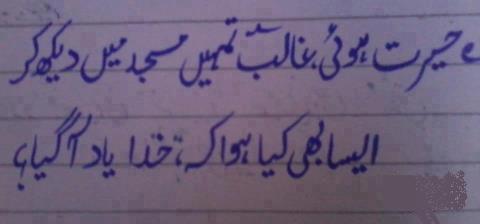 حیرت ہوئی غالبؔ تمہیں مسجد میں دیکھ کر
ایسا بھی کیا ہوا کہ خدا یاد آ گیا؟